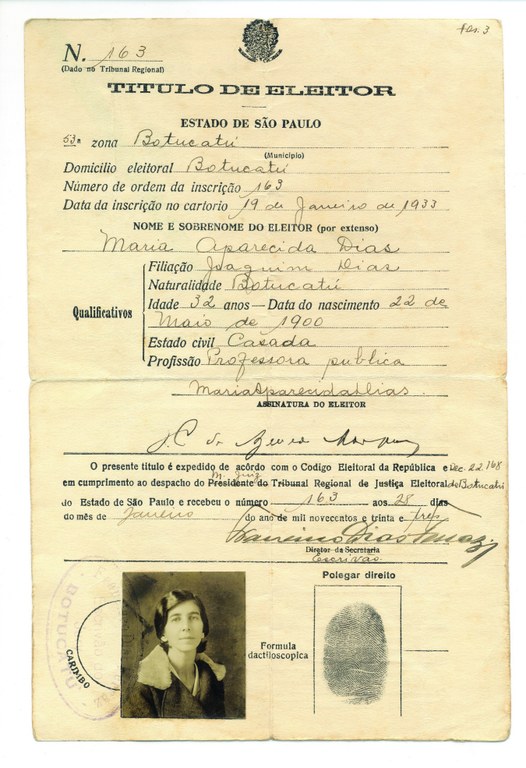 fls. 3
N. 163
(Dado no Tribunal Regional)
TITULO DE ELEITOR
ESTADO DE SÃO PAULO
53ª zona Botucatú
(Município)
Domicilio eleitoral Botucatú
Número de ordem da inscrição 163
Data da inscrição no cartorio 19 de Janeiro de 1933
NOME E SOBRENOME DO ELEITOR (por extenso)
Maria Aparecida Dias
Filiação Joaquim Dias
Naturalidade Botucatú
Qualificativos
Idade 32 anos — Data do nascimento 22 de
Maio de 1900
Estado civil Casada
Profissão Professora publica
Maria Aparecida Dias.
ASSINATURA DO ELEITOR
O presente titulo é expedido de acôrdo com o Codigo Eleitoral da República e Dec. 22.168
em cumprimento ao despacho do Presidente do Tribunal Regional de Justiça Eleitoral de Botucatú
M. Juiz
do Estado de São Paulo e recebeu o número 163 aos 28 dias
do mês de Janeiro do ano de mil novecentos e trinta e tres
Director da Secretaria
Escrivão
Polegar direito
BOTUCATU
CARIMBO
Formula
dactiloscopica